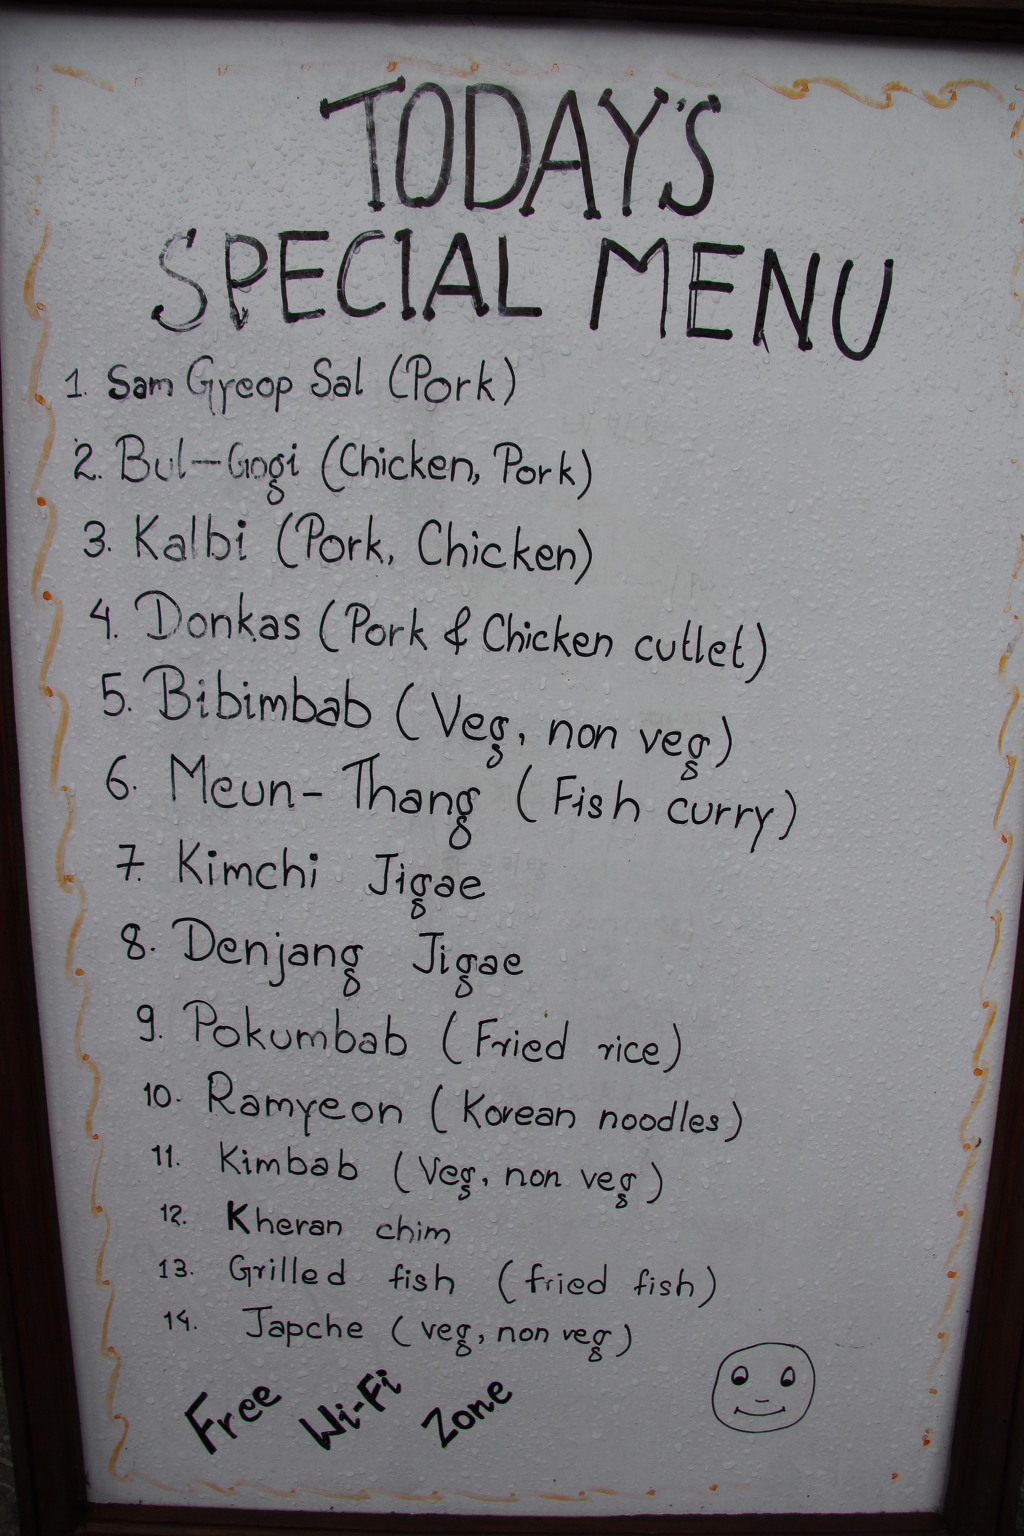 TODAY'S
SPECIAL MENU
1. Sam Gyeop Sal (Pork)
2. Bul-Gogi (Chicken, Pork)
3. Kalbi (Pork, Chicken)
4. Donkas (Pork & Chicken cutlet)
5. Bibimbab (Veg, non veg)
6. Meun-Thang (Fish curry)
7. Kimchi Jigae
8. Denjang Jigae
9. Pokumbab (Fried rice)
10. Ramyeon (Korean noodles)
11. Kimbab (Veg, non veg)
12. Kheran chim
13. Grilled fish (fried fish)
14. Japche (veg, non veg)
Free Wi-Fi Zone